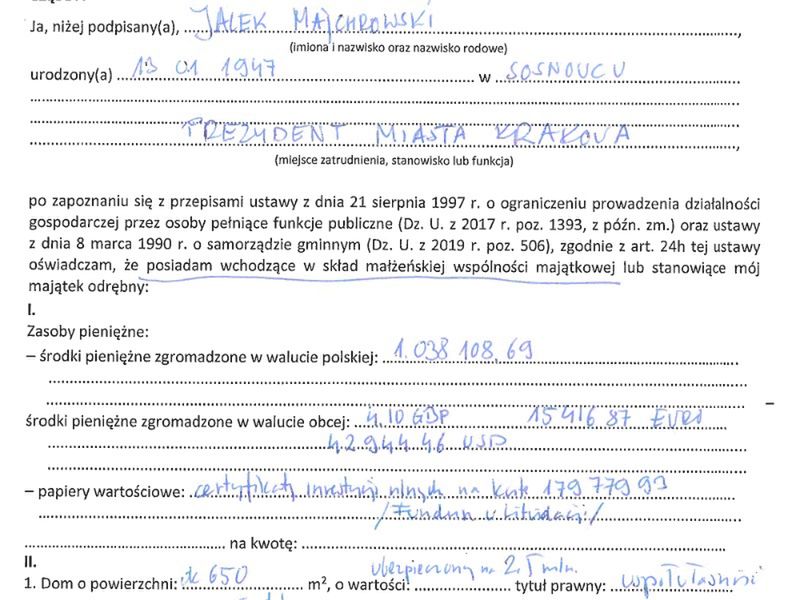 Ja, niżej podpisany(a), JACEK MAJCHROWSKI,
(imiona i nazwisko oraz nazwisko rodowe)
urodzony(a) 13 01 1947 w SOSNOWCU
PREZYDENT MIASTA KRAKOWA,
(miejsce zatrudnienia, stanowisko lub funkcja)
po zapoznaniu się z przepisami ustawy z dnia 21 sierpnia 1997 r. o ograniczeniu prowadzenia działalności
gospodarczej przez osoby pełniące funkcje publiczne (Dz. U. z 2017 r. poz. 1393, z późn. zm.) oraz ustawy
z dnia 8 marca 1990 r. o samorządzie gminnym (Dz. U. z 2019 r. poz. 506), zgodnie z art. 24h tej ustawy
oświadczam, że posiadam wchodzące w skład małżeńskiej wspólności majątkowej lub stanowiące mój
majątek odrębny:
I.
Zasoby pieniężne:
– środki pieniężne zgromadzone w walucie polskiej: 1.038 108,69
środki pieniężne zgromadzone w walucie obcej: 4,10 GBP 15416 87 EURO
42944.46 USD
– papiery wartościowe: certyfikaty inwestycyjnych na kwotę 179 779 93
/Fundusz w likwidacji/
na kwotę:
II.
ubezpieczony na 2,5 mln.
1. Dom o powierzchni: ok 650 m², o wartości: tytuł prawny: współwłasność